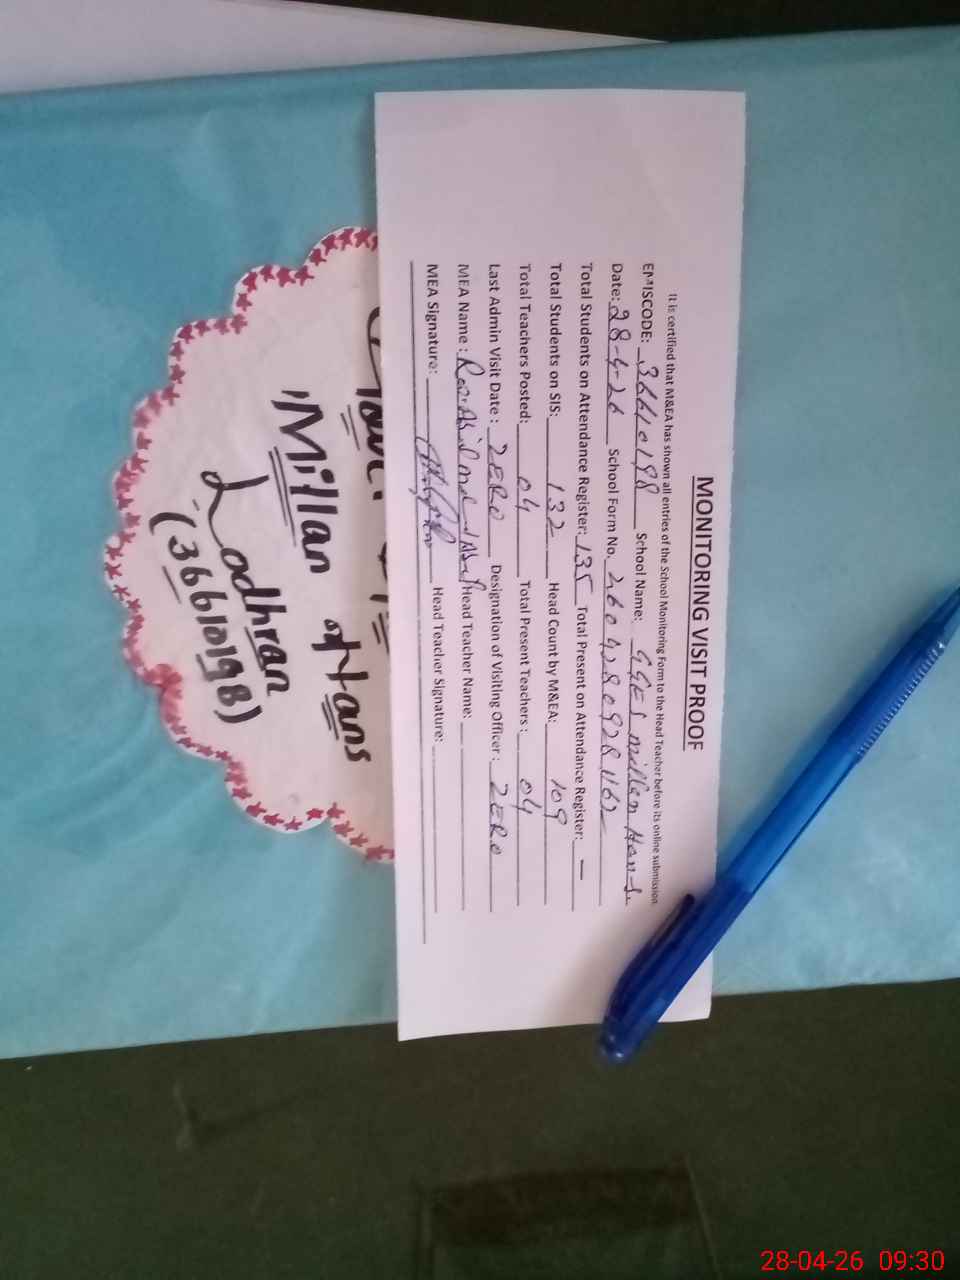 MONITORING VISIT PROOF
It is certified that M&EA has shown all entries of the School Monitoring Form to the Head Teacher before its online submission
EMISCODE: 36610198 School Name: GGES Millan Hans
Date: 28-4-26 School Form No. 26042809281162
Total Students on Attendance Register: 135 Total Present on Attendance Register: –
Total Students on SIS: 132 Head Count by M&EA: 109
Total Teachers Posted: 04 Total Present Teachers : 04
Last Admin Visit Date : ZERO Designation of Visiting Officer : ZERO
MEA Name : Head Teacher Name:
MEA Signature: Head Teacher Signature:
Millan Hans
Lodhran
(36610198)
28-04-26 09:30